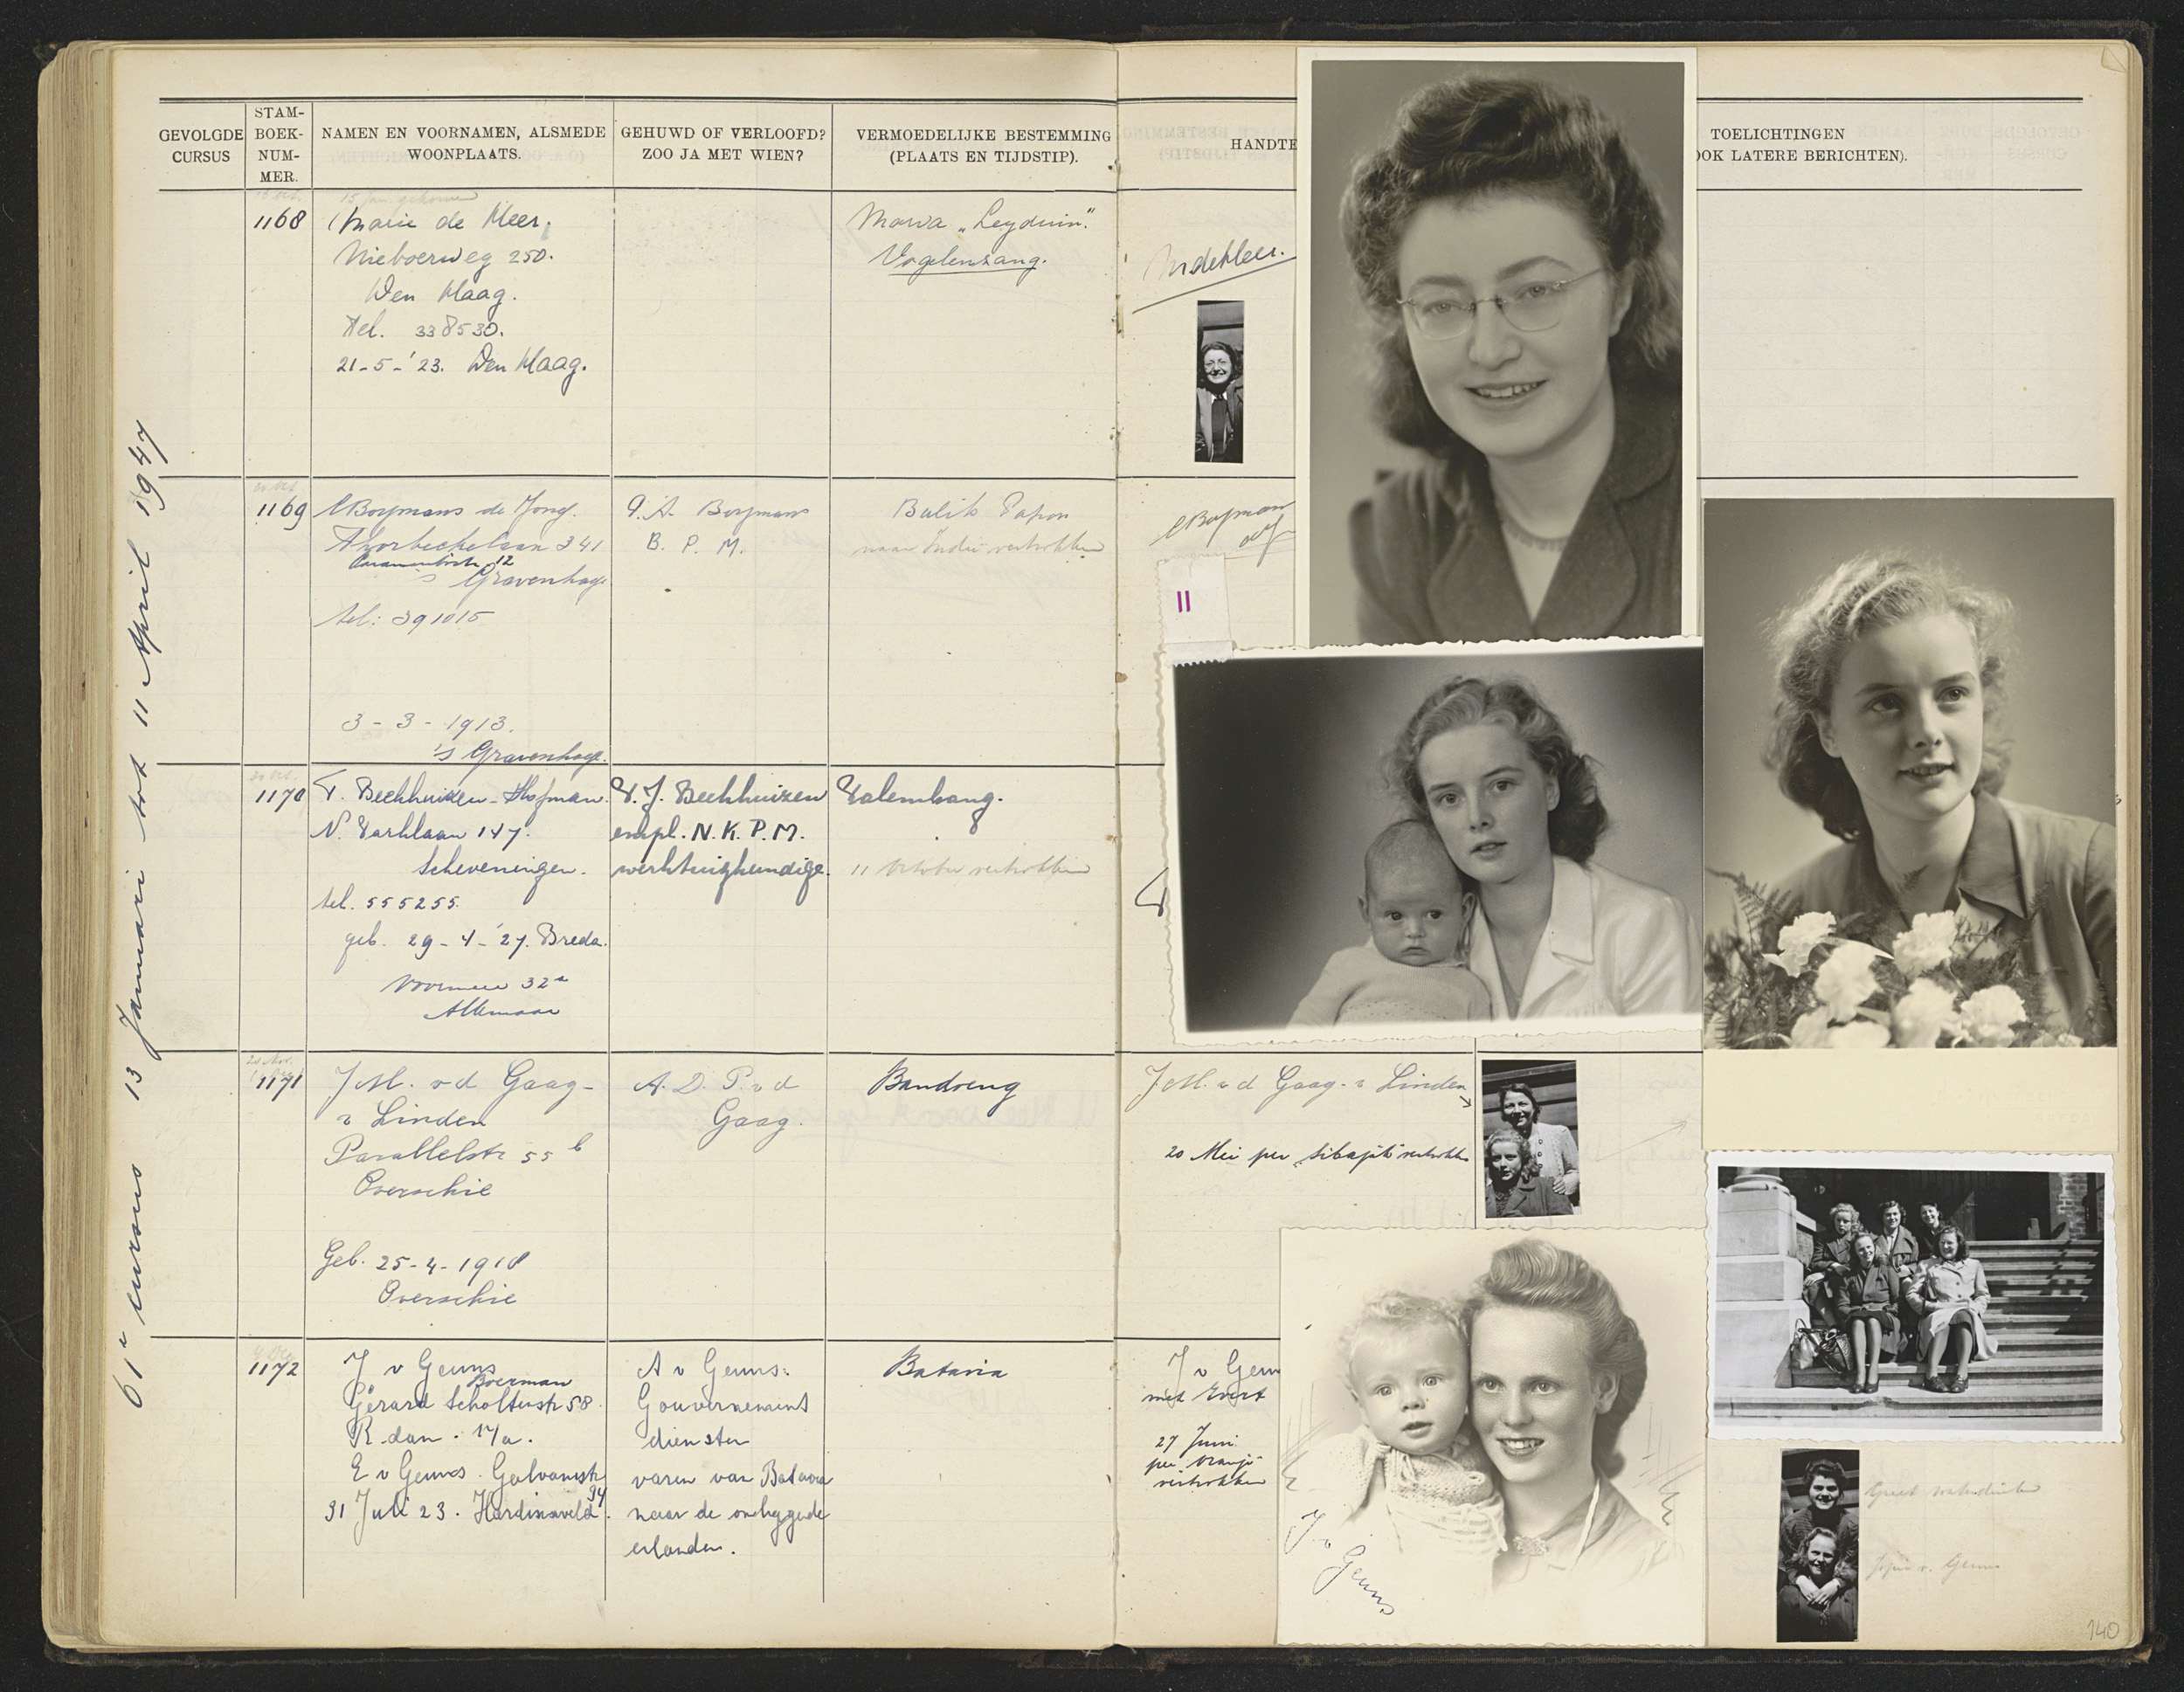 GEVOLGDE CURSUS
STAM-BOEK-NUM-MER.
NAMEN EN VOORNAMEN, ALSMEDE WOONPLAATS.
GEHUWD OF VERLOOFD? ZOO JA MET WIEN?
VERMOEDELIJKE BESTEMMING (PLAATS EN TIJDSTIP).
HANDTE
TOELICHTINGEN
OOK LATERE BERICHTEN).
61e cursus 13 Januari tot 11 April 1947
1168
Marie de Kleer.
Nieboerweg 250.
Den Haag.
Tel. 338530.
21-5-'23. Den Haag.
Marva „Leyduin".
Vogelenzang.
MdeKleer.
1169
CBoymans de Jong.
Thorbeckelaan 341
12
's Gravenhage
tel: 391015
3-3-1913.
's Gravenhage.
Boymans
B. P. M.
Balik Papan
naar Indië vertrokken
CBoymans
deJ
II
1170
T. Beekhuizen-Hofman.
N. Parklaan 147.
Scheveningen.
tel. 555255.
geb. 29-4-'27. Breda.
Voormeer 32a
Alkmaar
P. J. Beekhuizen
empl. N.K.P.M.
werktuigkundige.
Palembang.
11 October vertrokken
1171
J M. v d Gaag-
v Linden
Parallelstr 55 b
Overschie
Geb. 25-4-1918
Overschie
A. D. P. v d
Gaag.
Bandoeng
J M. v d Gaag-v Linden
20 Mei per „Sibajak" vertrokken
1172
J v Geuns
Boerman
Gerard Scholtenstr 58
R.dam. 17a.
E v Geuns. Galvanistr
94
31 Juli 23. Hardinxveld.
A v Geuns:
Gouvernements
diensten
varen van Batavia
naar de omliggende
eilanden.
Batavia
J v Geun
met Evert
27 Juni
per Oranje
vertrokken
J v Geuns
Greet
v. Geuns
140